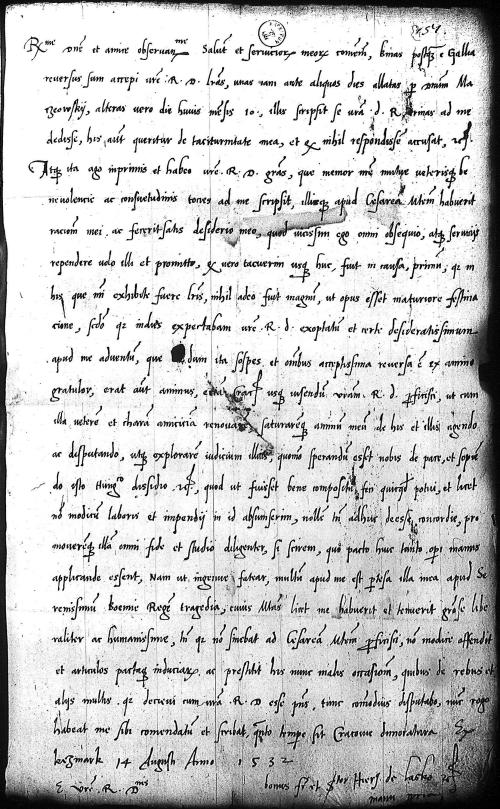 R.me D.ne et amice observan.me Salut̄ et servicior̄ meor̄ com̄em, binas postq̄ e Gallia
reversus sum accepi vr̄e . R . D . l̄ras, unas iam ante aliquos dies allatas p d̄num Ma
czeovskij, alteras vero die huius m̄esis 10., illis scripsit se vr̄a . d . R . primas ad me
dedisse, his aut̄ queritur de taciturnitate mea, et q̄ nihil respondisse accusat,
Atq̄ ita ago inprimis et habeo vr̄e . R . D . gr̄as, que memor m̄ mutue veterisq̄ be
nivolencie ac consuetudinis tocies ad me scripsit, apud Cesareā M̄tem habuerit
racionē mei, ac fecerit satis desiderio meo, quod vicissim ego omni obsequio, atq̄ servicijs
rependere volo illi et promitto, q̄ vero tacuerim usq̄ huc, fuit in causa, primū, q̄ in
his que m̄ exhibite fuere l̄ris, nihil adeo fuit magnū, ut opus esset maturiore festina
cione, sc̄do q̄ indies expectabam vr̄e . R . d . exoptatū et certe desideratissimum
apud me adventū, que dum ita sospes et om̄ibus acceptissima reversa ē ex animo
gratulor, erat aut̄ animus, usq̄ visendū vr̄am . R . d . p̄ficisci, ut cum
illa veterē et charā amiciciā saturareq̄ animū meū de his et illis agendo
ac disputando, utq̄ explorarē iudicium illius, quom̄o sperandū esset nobis de pace, et sopiē
do isto Hung.co dissidio, quod ut fuisset bene compositū, feci quicq̄d potui, et licet
nō modicū laboris et impendij in id absumserim, nollē tn̄ adhuc deesse concordie, pro
movereq̄ illā omni fide et studio diligenter, si scirem, quo pacto huic tanto opi manus
applicande essent, Nam ut ingenue fatear, multū apud me est p̄tesa illa mea apud Se
renissimū Boemie Regē tragedia, cuius M̄tas licet me habuerit et tenuerit libe
raliter ac humanissime, tn̄ q̄ nō sinebat ad Cesareā M̄tem p̄ficisci, nō modice offendit
et articulos pactaq̄ induciar̄, ac prestitit his nunc malis occasionē, quibus de rebus et
alijs multis, q̄ decrevi cum vr̄a . R . D esse p̄ns, tunc comodius disputabo, nunc rogo
habeat me sibi com̄endatū et scribat, q̄nto tempe sit Cracovie dimoratura Ex
kesmark 14 Augusti Anno 1532
E. vr̄e . R . D.nis
bonus fr̄ et Hier. de Lasko
manu